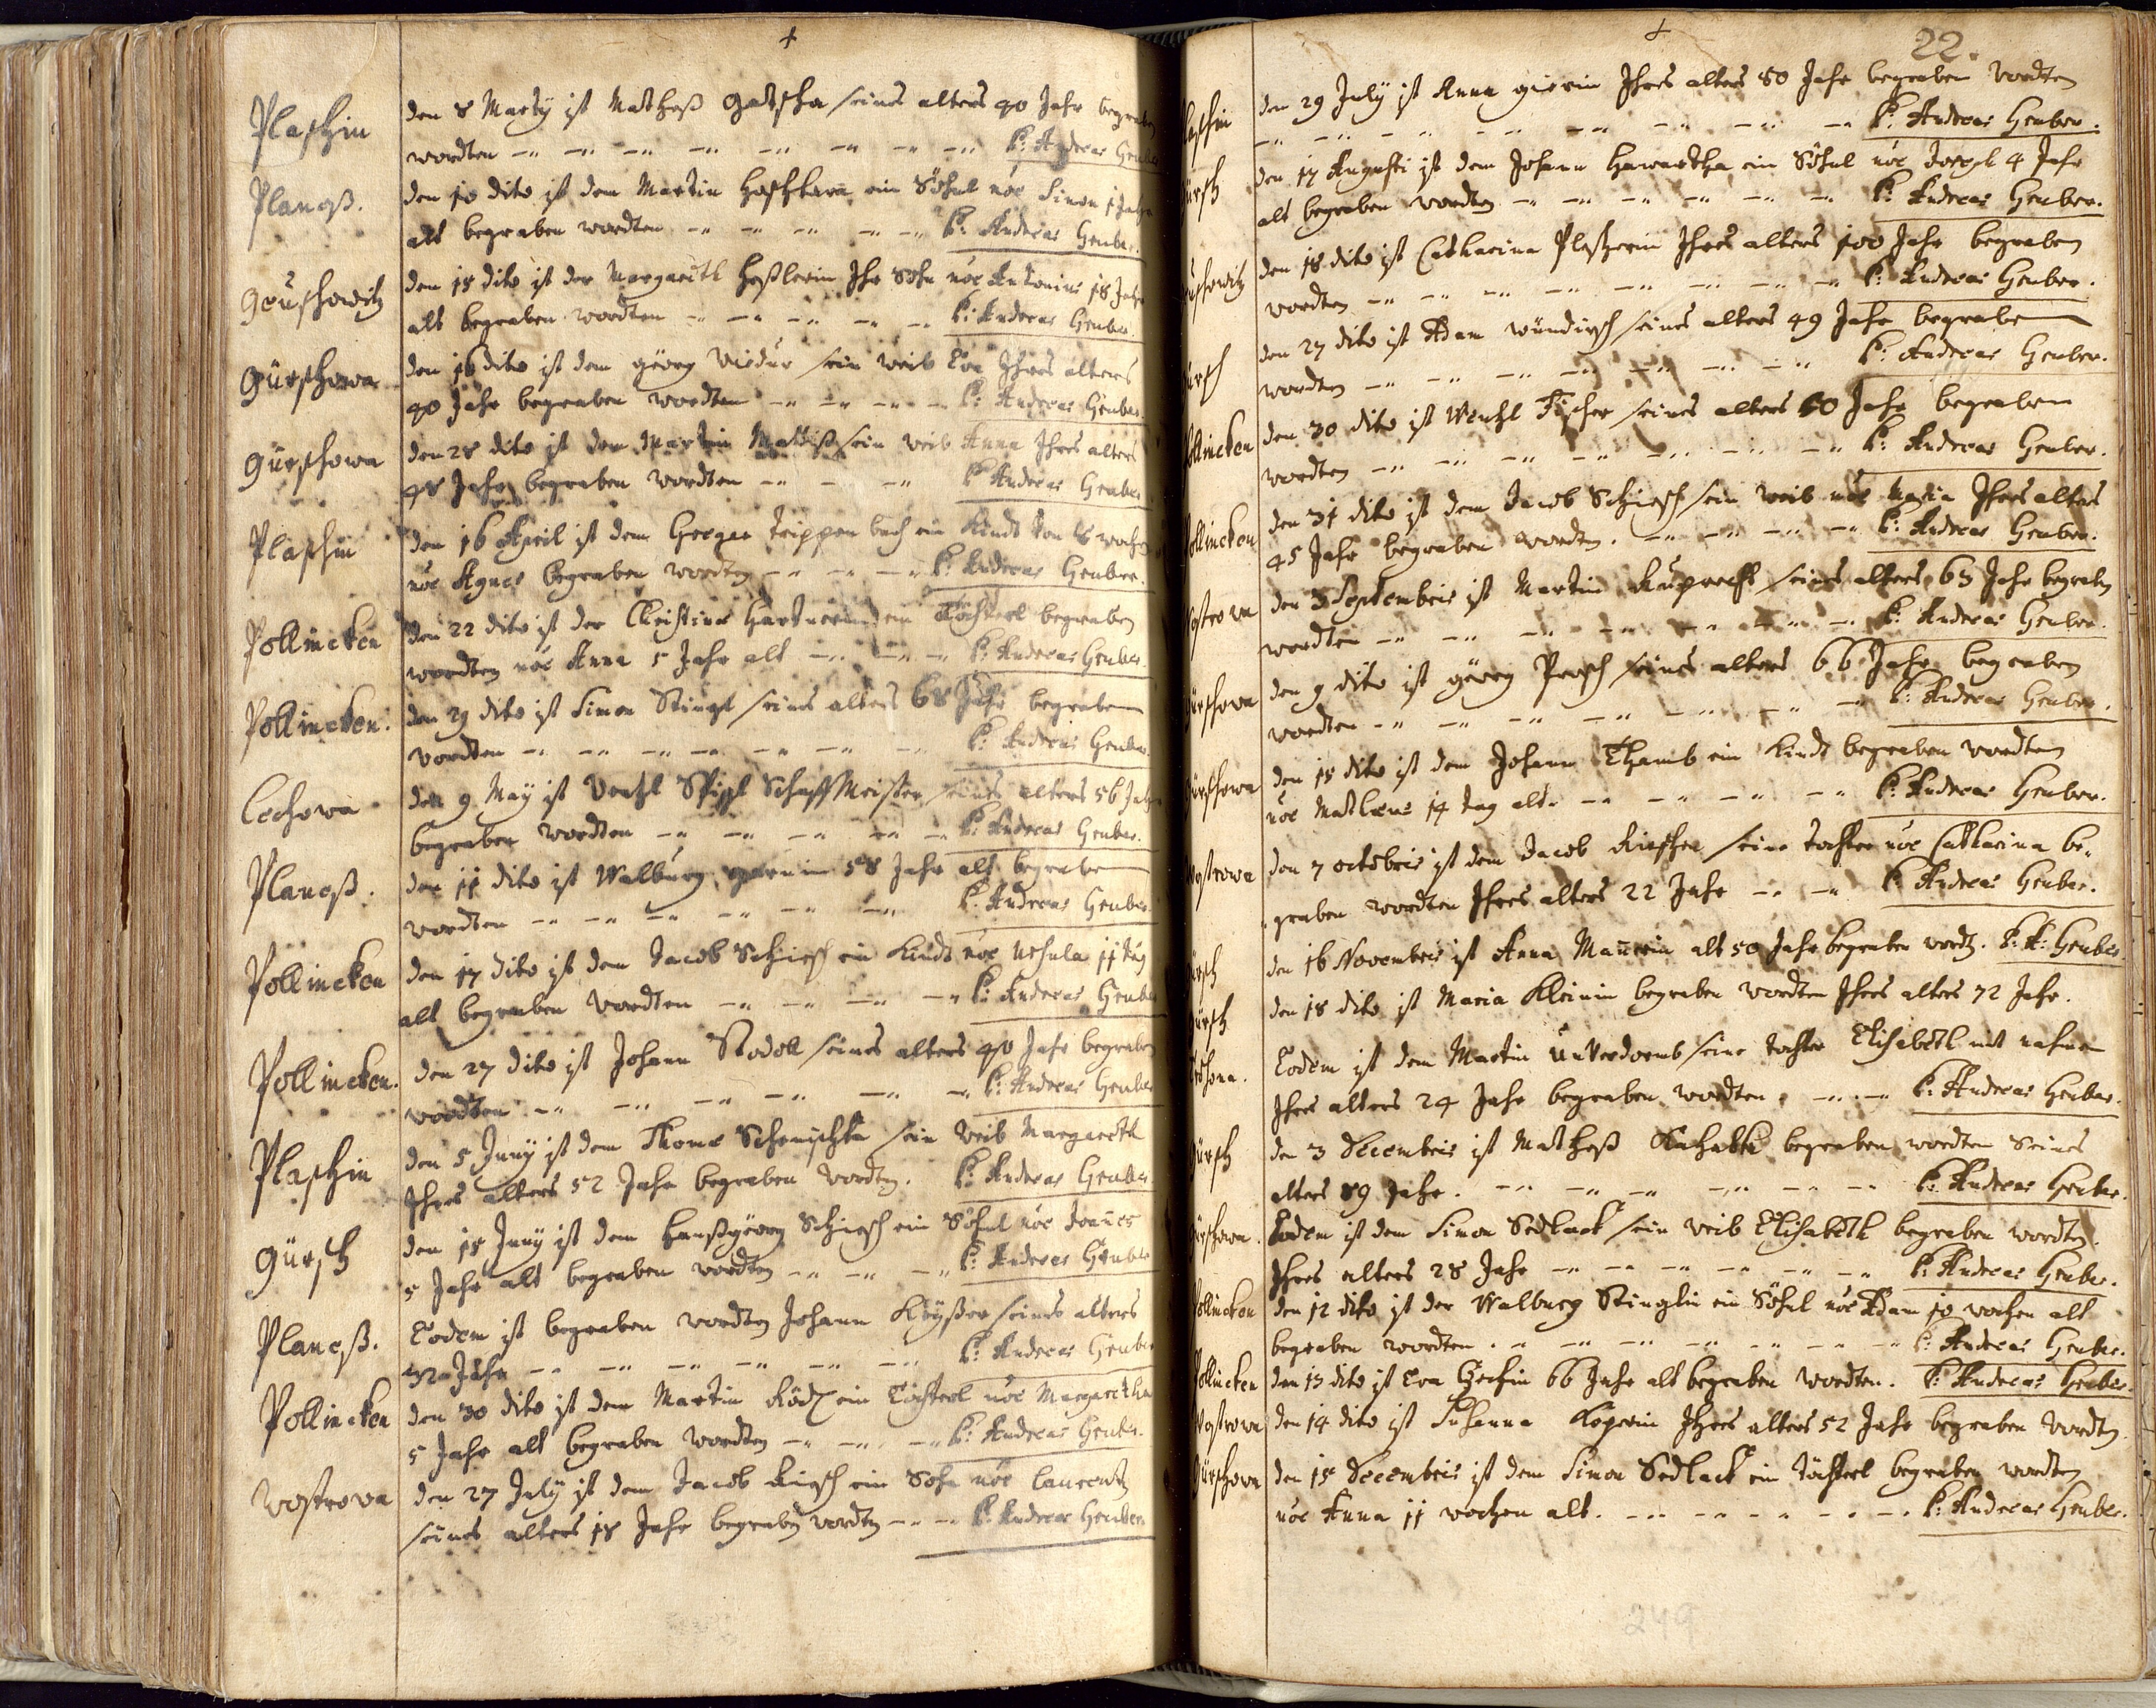 Plaschin
den 8 Marty ist Mathesß Gatscha seines alters 40 Jahr begraben
wordten P: Andreas Gruber
Planeß.
den 10 dito ist dem Martin ein Söhnl nõe Simon 1 Jahr
alt begraben wordten P: Andreas Gruber.
Geuschowitz
den 15 dito ist der Margareth Heßlerin Ihr Sohn nõe Antonius 18 Jahr
alt begraben wordten P: Andreas Gruber.
Gürschowa
den 16 dito ist dem Geörg sein weib Eva Ihres alters
40 Jahr begraben wordten P: Andreas Gruber.
Gürschowa
den 28 dito ist dem Martin sein weib Anna Ihres alters
48 Jahr begraben wordten P: Andreas Gruber
Plaschin
den 16 April ist dem Gregor Trippenbach ein Kindt von 6 wochen
nõe Agnes begraben wordten P: Andreas Gruber.
Pollincken
den 22 dito ist der Christina Hartnerin ein Töchterl begraben
wordten nõe Anna 5 Jahr alt P: Andreas Gruber.
Pollincken.
den 29 dito ist Simon Stingl seines alters 68 Jahr begraben
wordten P: Andreas Gruber.
Lechowa
den 9 Maÿ ist Wentzl Schaffmeister seines alters 56 Jahr
begraben wordten P: Andreas Gruber.
Planeß.
den 11 dito ist Walburg 58 Jahr alt begraben
wordten P: Andreas Gruber.
Pollincken
den 17 dito ist dem Jacob Schirsch ein Kindt nõe Ursula 11 tag
alt begraben wordten P: Andreas Gruber
Pollincken.
den 27 dito ist Johann Stodoll seines alters 40 Jahr begraben
wordten P: Andreas Gruber
Plaschin
den 5 Juny ist dem Thoma sein weib Margareth
Ihres alters 52 Jahr begraben wordten. P: Andreas Gruber
Gürsch
den 15 Juny ist dem Hanßgeörg Schirsch ein Söhnl nõe Joañes
5 Jahr alt begraben wordten P: Andreas Gruber
Planeß.
Eodem ist begraben wordten Johann Keyßer seines alters
32 Jahr P: Andreas Gruber
Pollincken
den 30 dito ist dem Martin Ködl ein Töchterl nõe Margaretha
5 Jahr alt begraben wordten P: Andreas Gruber.
Wostrowa
den 27 July ist dem Jacob Kirsch ein Sohn nõe Laurentz
seines alters 18 Jahr begraben wordten P: Andreas Gruber
22.
laschin
den 29 July ist Anna Ihres alters 80 Jahr begraben wordten
P: Andreas Gruber.
ürsch
den 17 Augusti ist dem Johann Hawartha ein Söhnl nõe Joseph 4 Jahr
alt begraben wordten P: Andreas Gruber.
uschowitz
den 18 dito ist Catharina Ihres alters 100 Jahr begraben
wordten P: Andreas Gruber.
ürsch
den 27 dito ist Adam Wündirsch seines alters 49 Jahr begraben
wordten P: Andreas Gruber.
ollincken
den 30 dito ist Wentzl Fischer seines alters 60 Jahr begraben
wordten P: Andreas Gruber.
ollincken
den 31 dito ist dem Jacob Schirsch sein weib nõe Maria Ihres alters
45 Jahr begraben wordten. P: Andreas Gruber.
ostrowa
den 3 Septembris ist Martin Ruprecht seines alters 63 Jahr begraben
wordten P: Andreas Gruber.
ürschowa
den 9 dito ist Geörg Persch seines alters 66 Jahr begraben
wordten P: Andreas Gruber.
ürschowa
den 15 dito ist dem Johann Thamb ein Kindt begraben wordten
nõe Mathæus 14 tag alt. P: Andreas Gruber.
ostrowa
den 7 octobris ist dem Jacob seine tochter nõe Catharina be-
graben wordten Ihres alters 22 Jahr P: Andreas Gruber.
ürsch
den 16 Novembris ist Anna Mañerin alt 50 Jahr begraben wordt. P: A: Gruber
ürsch
den 18 dito ist Maria Kleinin begraben wordten Ihres alters 72 Jahr.
Eodem ist dem Martin Unverdorb seine tochter Elisabeth mit nahmen
Ihres alters 24 Jahr begraben wordten P: Andreas Gruber.
ürsch
den 3 Decembris ist Matheß begraben wordten seines
alters 89 Jahr. P: Andreas Gruber.
ürschowa.
Eodem ist dem Simon Sedlack sein weib Elisabeth begraben wordten.
Ihres alters 28 Jahr P: Andreas Gruber.
ollincken
den 12 dito ist der Walburg Stinglin ein Söhnl nõe Adam 10 wochen alt
begraben wordten. P: Andreas Gruber.
ollincken
den 13 dito ist Eva 66 Jahr alt begraben wordten. P: Andreas Gruber.
Wostrowa
den 14 dito ist Susanna Ihres alters 52 Jahr begraben wordten
Gürschowa
den 15 Decembris ist dem Simon Sedlack ein töchterl begraben wordten
nõe Anna 11 wochen alt. P: Andreas Gruber.
249